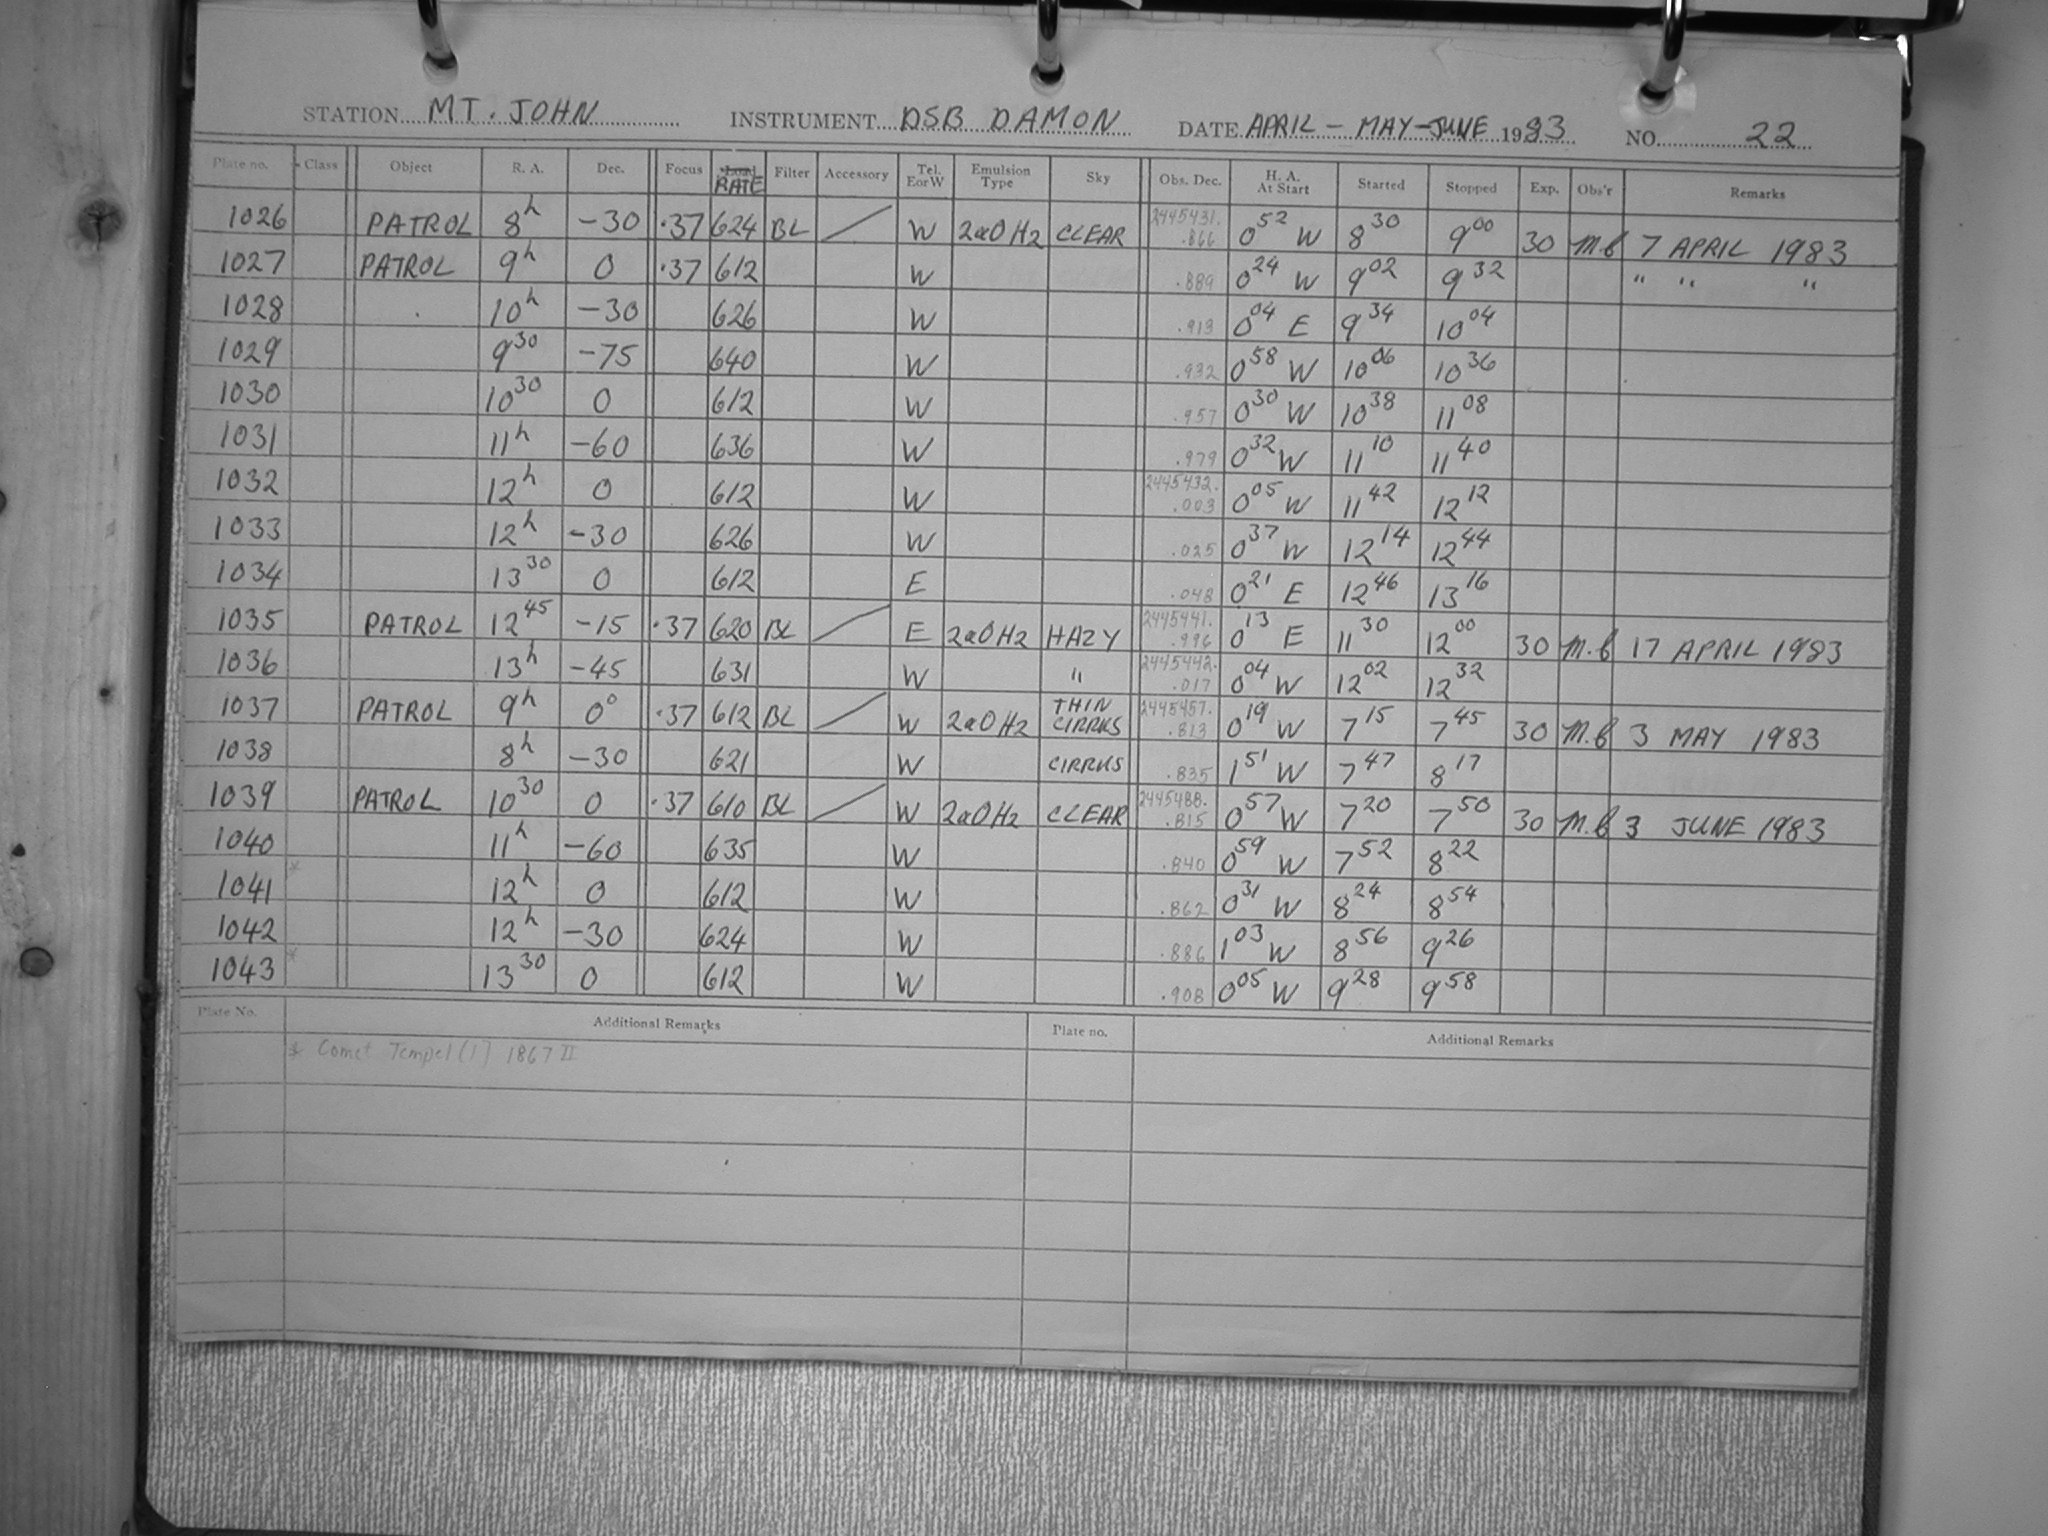 STATION MT. JOHN INSTRUMENT DSB DAMON DATE APRIL - MAY - JUNE 1983 NO. 22
Plate no. Class Object R. A. Dec. Focus RATE Filter Accessory Tel. E or W Emulsion Type Sky Obs. Dec. H. A. At Start Started Stopped Exp. Obs'r Remarks
1026 PATROL 8h -30 .37 624 BL / W 2aO H2 CLEAR 2445431. .866 0 52 W 8 30 9 00 30 M.B 7 APRIL 1983
1027 PATROL 9h 0 .37 612 W .889 0 24 W 9 02 9 32 " " "
1028 10h -30 626 W .913 0 04 E 9 34 10 04
1029 9 30 -75 640 W .932 0 58 W 10 06 10 36
1030 10 30 0 612 W .957 0 30 W 10 38 11 08
1031 11h -60 636 W .979 0 32 W 11 10 11 40
1032 12h 0 612 W 2445432. .003 0 05 W 11 42 12 12
1033 12h -30 626 W .025 0 37 W 12 14 12 44
1034 13 30 0 612 E .048 0 21 E 12 46 13 16
1035 PATROL 12 45 -15 .37 620 BL / E 2aO H2 HAZY 2445441. .996 0 13 E 11 30 12 00 30 M.B 17 APRIL 1983
1036 13h -45 631 W " 2445442. .017 0 04 W 12 02 12 32
1037 PATROL 9h 0° .37 612 BL / W 2aO H2 THIN CIRRUS 2445457. .813 0 19 W 7 15 7 45 30 M.B 3 MAY 1983
1038 8h -30 621 W CIRRUS .835 1 51 W 7 47 8 17
1039 PATROL 10 30 0 .37 610 BL / W 2aO H2 CLEAR 2445488. .815 0 57 W 7 20 7 50 30 M.B 3 JUNE 1983
1040 11h -60 635 W .840 0 59 W 7 52 8 22
1041 * 12h 0 612 W .862 0 31 W 8 24 8 54
1042 12h -30 624 W .886 1 03 W 8 56 9 26
1043 * 13 30 0 612 W .908 0 05 W 9 28 9 58
Plate No. Additional Remarks Plate no. Additional Remarks
* Comet Tempel (1) 1867 II